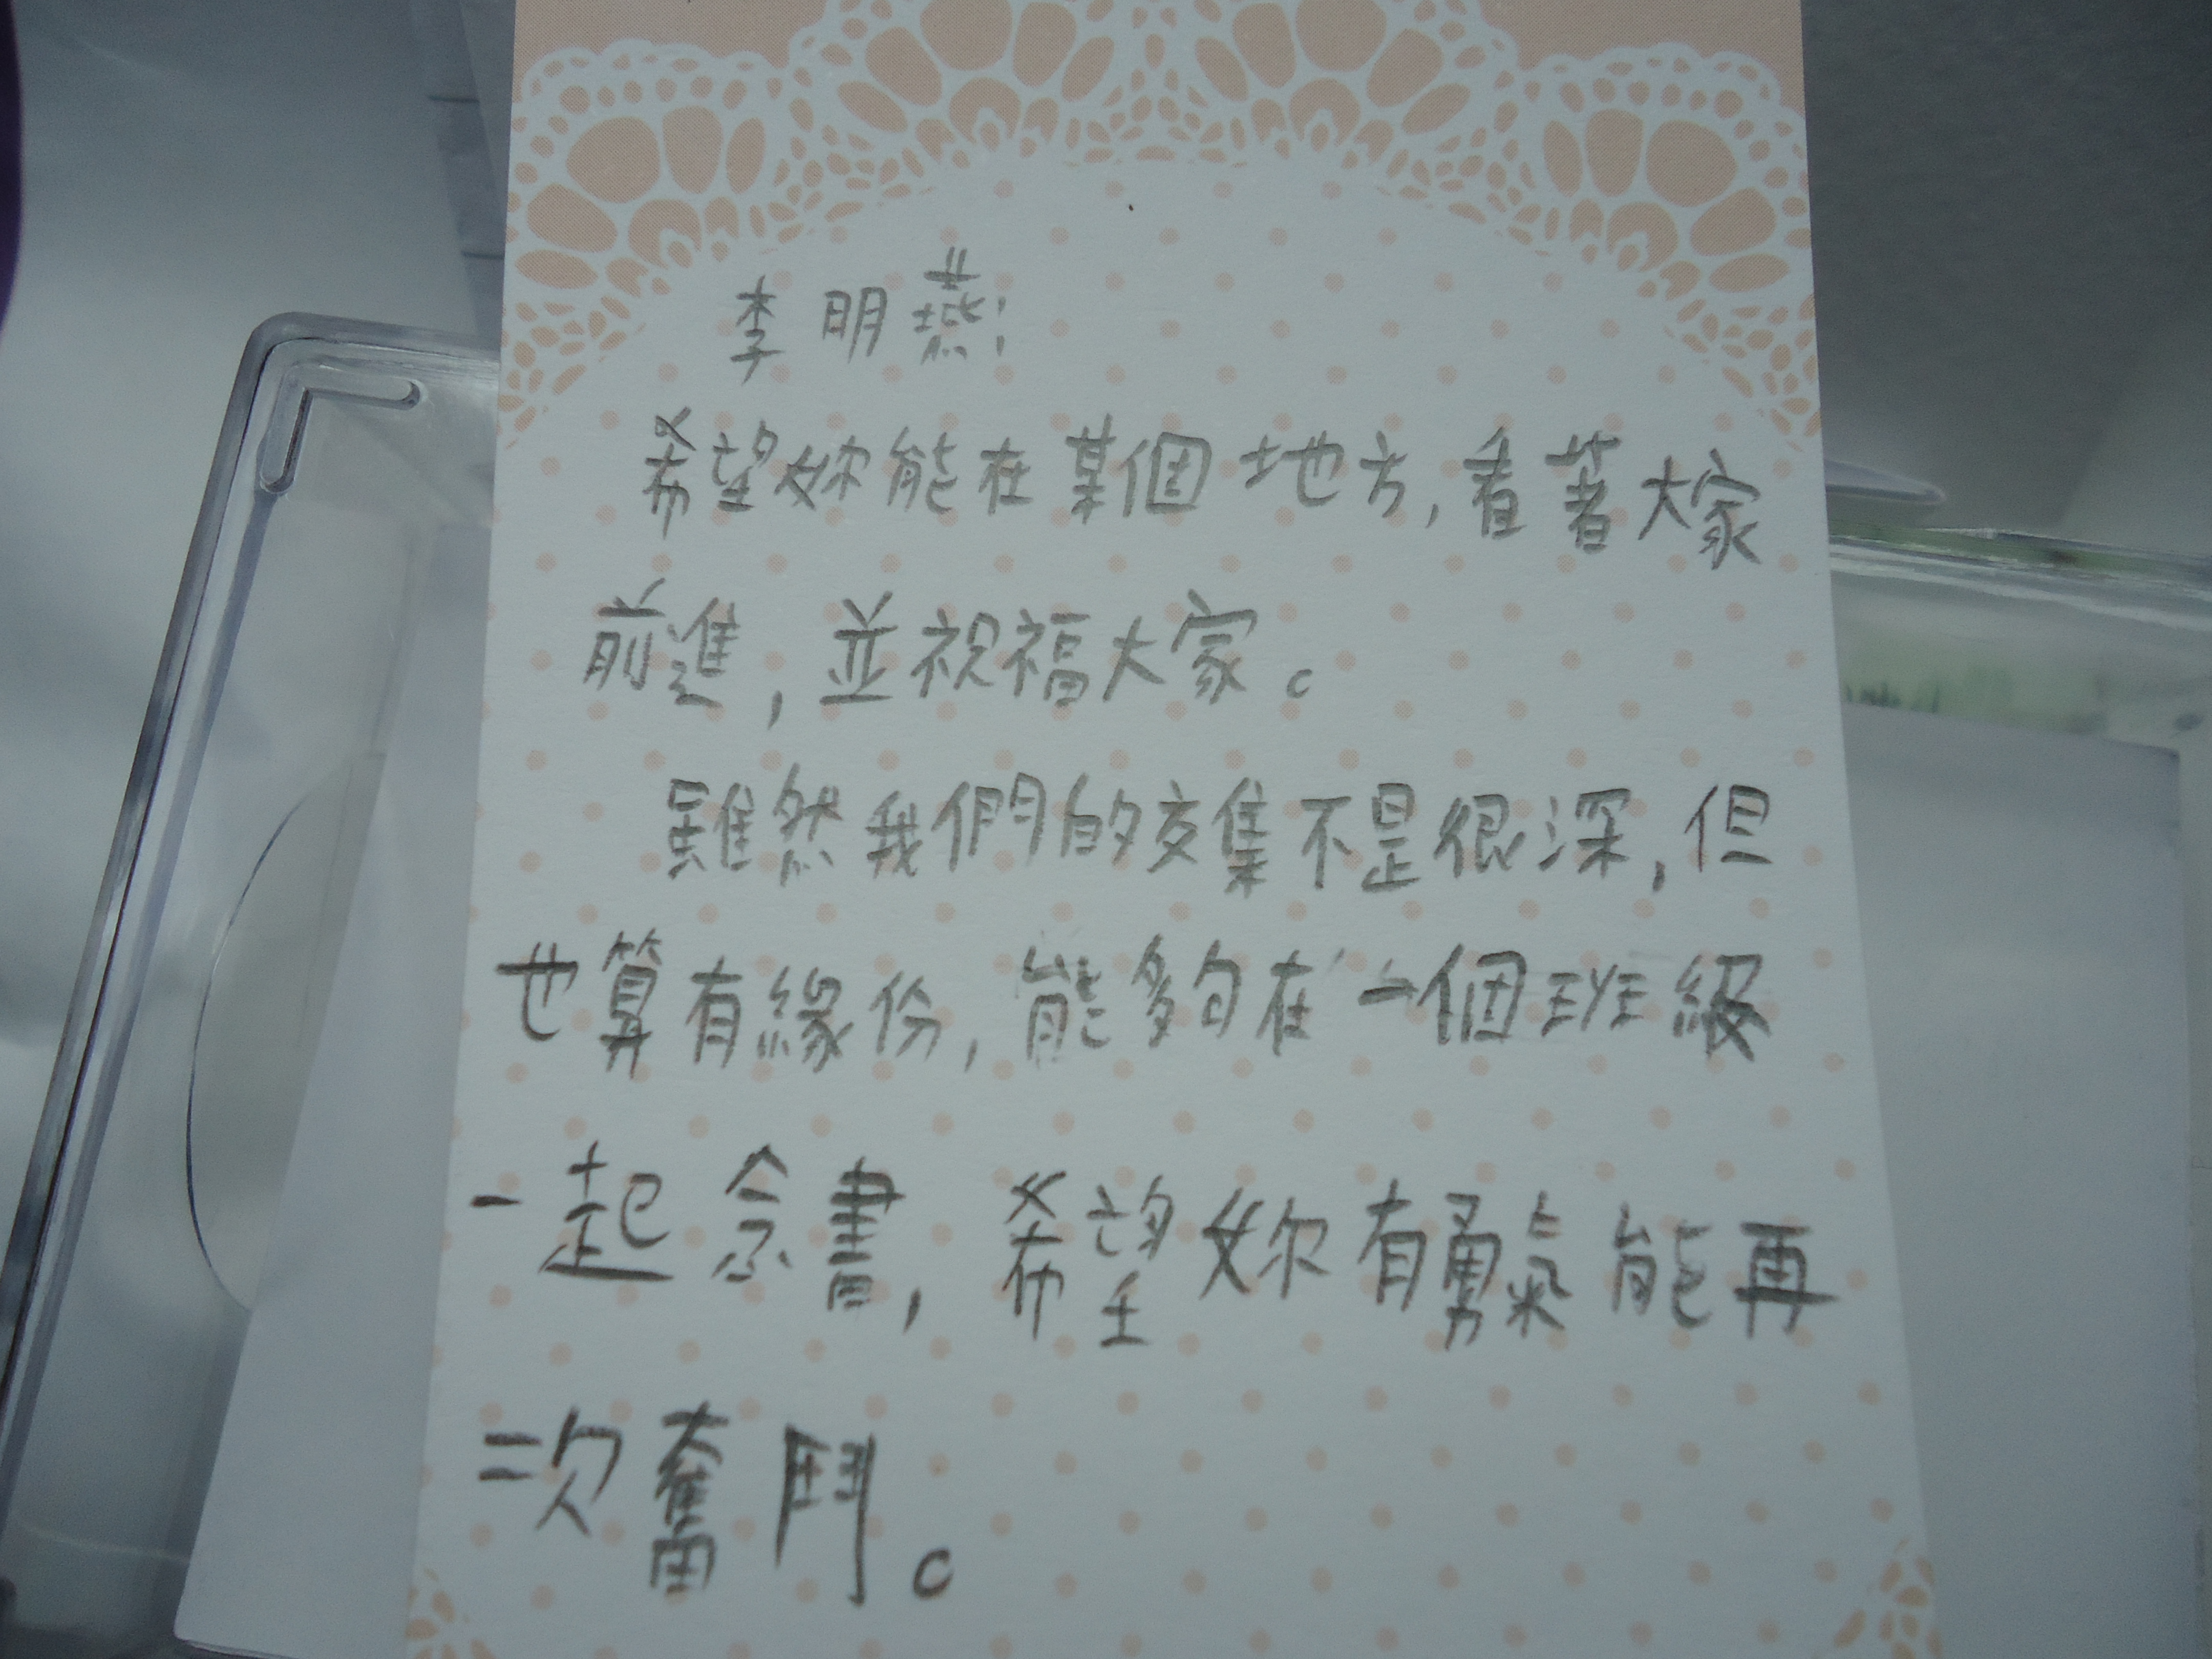 李明燕:
希望妳能在某個地方,看著大家
前進,並祝福大家。
雖然我們的交集不是很深,但
也算有緣份,能夠在一個班級
一起念書,希望妳有勇氣能再
次奮鬥。